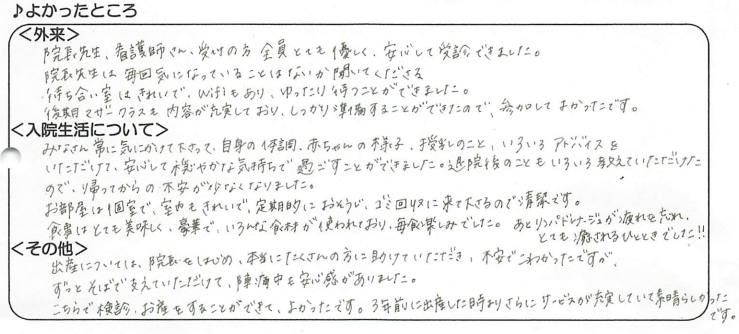 ♪よかったところ
＜外来＞
院長先生、看護師さん、受付の方 全員とても優しく、安心して受診できました。
院長先生は毎回気になっていることはないか聞いてくださる
待ち合い室はきれいで、Wifiもあり、ゆったり待つことができました。
後期マザークラスも内容が充実しており、しっかり準備することができたので、参加してよかったです。
＜入院生活について＞
みなさん常に気にかけて下さって、自身の体調、赤ちゃんの様子、授乳のこと、いろいろアドバイスを
いただけて、安心して穏やかな気持ちで過ごすことができました。退院後のこともいろいろ教えていただけた
ので、帰ってからの不安が少なくなりました。
お部屋は個室で、室内もきれいで、定期的におそうじ、ゴミ回収に来て下さるので清潔です。
食事はとても美味しく、豪華で、いろんな食材が使われており、毎食楽しみでした。あとリンパドレナージュが疲れを忘れ、
とても癒されるひとときでした!!
＜その他＞
出産については、院長をはじめ、本当にたくさんの方に助けていただき、不安でこわかったですが、
ずっとそばで支えていただけて、陣痛中も安心感がありました。
こちらで検診、お産をすることができて、よかったです。3年前に出産した時よりさらにサービスが充実していて素晴らしかった
です。